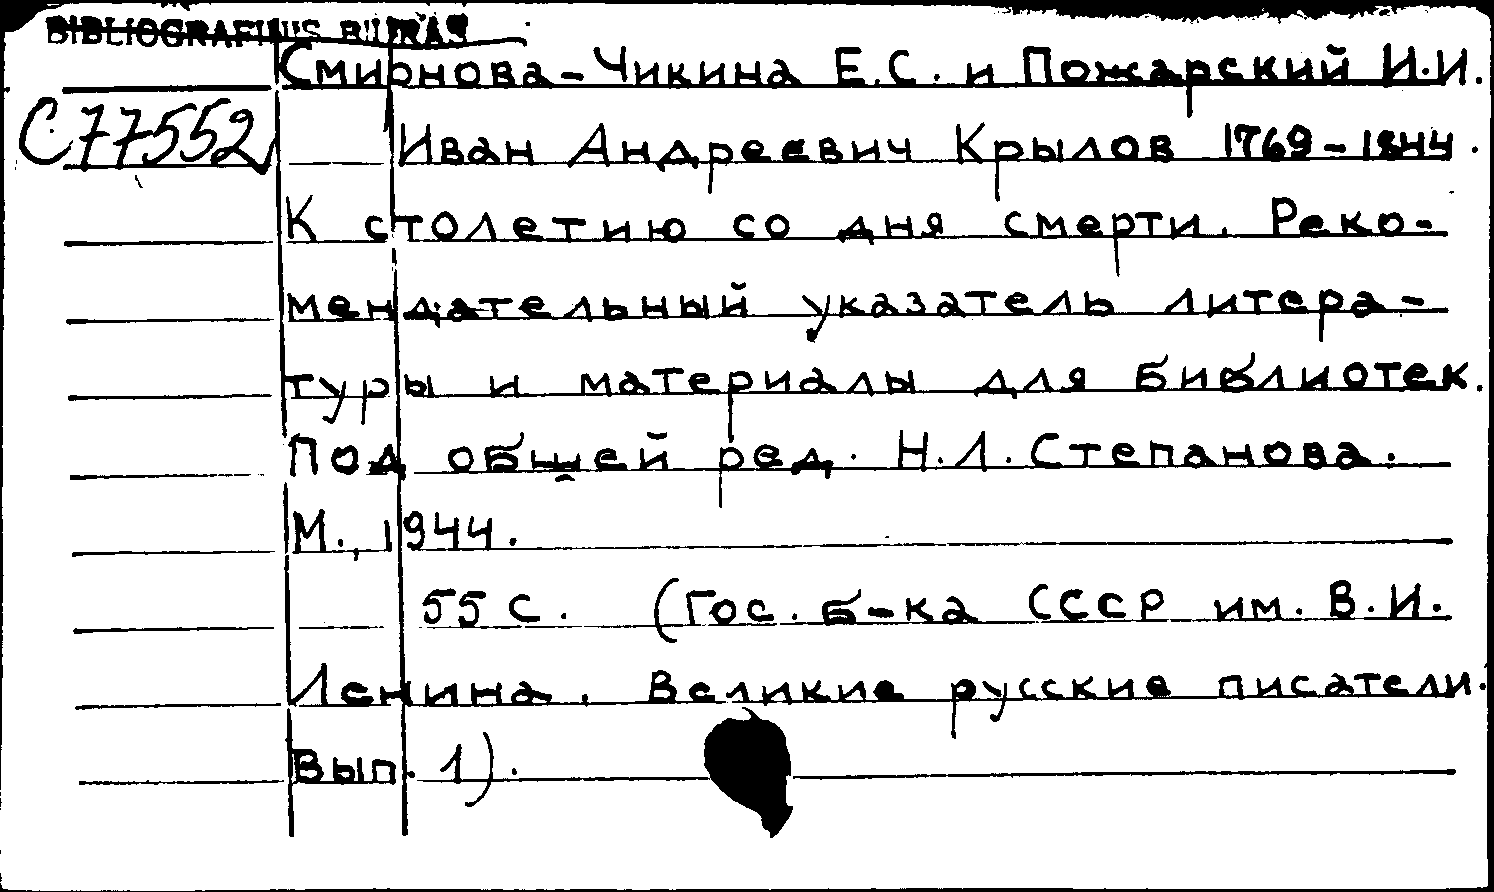 BIBLIOGRAFINIS BIURAS
Смирнова-Чикина Е.С. и Пожарский И.И.
С77552
Иван Андреевич Крылов 1769-1844.
К столетию со дня смерти. Реко-
мендательный указатель литера-
туры и материалы для библиотек.
Под общей ред. Н.Л. Степанова.
М., 1944.
55 с. (Гос. б-ка СССР им. В.И.
Ленина. Великие русские писатели.
Вып. 1).